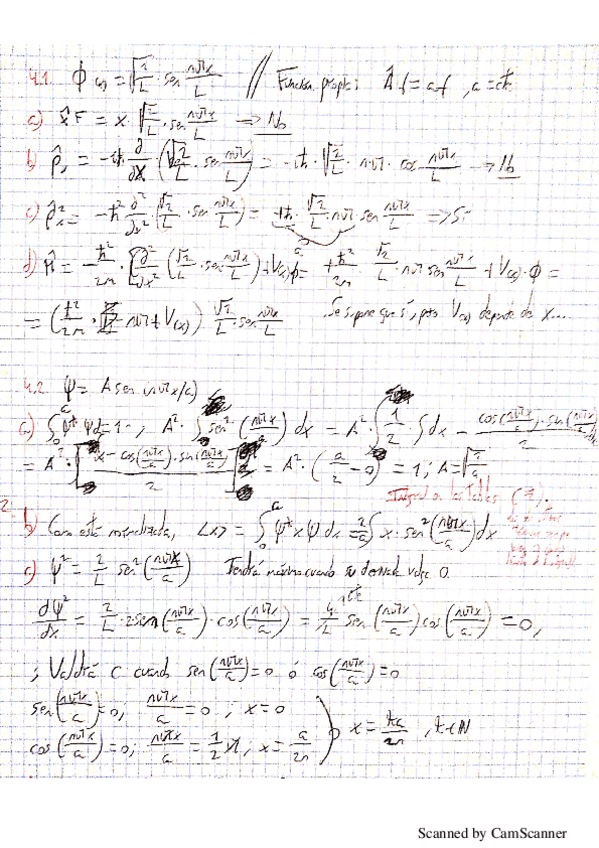 4.1. Φ(x) = √(2/L) · sen nπx/L // Función propia: Âf = af, a = cte.
a) x̂F = x · √(2/L) · sen nπx/L ⇒ No
b) p̂x = -iħ ∂/∂x · (√(2/L) · sen nπx/L) = -iħ · √(2/L) · nπ · cos nπx/L → No
c) p̂x² = -ħ² ∂²/∂x² · (√2/L · sen nπx/L) = -iħ · √2/L nπ sen nπx/L ⇒ Sí
d) Ĥ = -ħ²/2m · ∂²/∂x² (√2/L · sen nπx/L) + V(x)Φ = +ħ²/2m · √2/L · nπ sen nπx/L + V(x) · Φ =
= (ħ²/2m · nπ + V(x)) √2/L · sen nπx/L Se supone que sí, pero V(x) depende de x...
4.2. Ψ = A sen(nπx/a)
a) ∫₀ᵃ Ψ* Ψ d = 1 , A² · ∫ sen² (nπx/a) dx = A² · ∫ 1/2 · ∫dx - cos(nπx/a) · sin(nπx/a)
= A² · [x - cos(nπx/a) · sin(nπx/a) / 2] = A² · (a/2 - 0) = 1 ; A = √(2/a)
Integral en las tablas
b) Como está normalizada, <x> = ∫₀ᵃ Ψ* x Ψ dx 2/a ∫ x · sen² (nπx/a) dx
c) Ψ² = 2/L sen² (nπx/a) Tendrá máximo cuando su derivada valga 0.
dΨ²/dx = 2/L · 2 sen(nπx/a) · cos(nπx/a) = 4/L sen(nπx/a) cos(nπx/a) = 0,
; Valdrá 0 cuando sen(nπx/a) = 0 ó cos(nπx/a) = 0
sen(nπx/a) = 0; nπx/a = 0 ; x = 0
cos(nπx/a) = 0; nπx/a = 1/2 π, x = a/2n
x = ka/2n , k∈N
Scanned by CamScanner